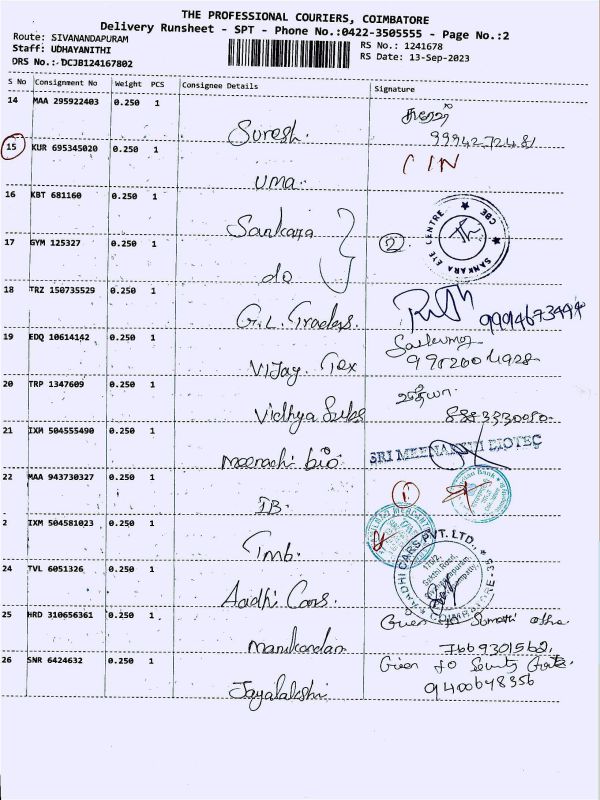 THE PROFESSIONAL COURIERS, COIMBATORE
Delivery Runsheet - SPT - Phone No.:0422-3505555 - Page No.:2
Route: SIVANANDAPURAM
Staff: UDHAYANITHI
DRS No.: DCJB124167802
RS No.: 1241678
RS Date: 13-Sep-2023
S No Consignment No Weight PCS Consignee Details Signature
14 MAA 295922403 0.250 1
Suresh. 9994272481
15 KUR 695345020 0.250 1
uma.
16 KBT 681160 0.250 1
Sankara
SANKARA EYE CENTRE ★ CBE ★
17 GYM 125327 0.250 1
do
2
18 TRZ 150735529 0.250 1
G.L. Traders.
19 EDQ 10614142 0.250 1
Vijay. Tex
20 TRP 1347609 0.250 1
Vidhya Subs
வித்யா
8883330080
21 IXM 504555490 0.250 1
meenachi bio
SRI MEENAKSHI BIOTEC
22 MAA 943730327 0.250 1
IB.
1
2 IXM 504581023 0.250 1
Tmb.
24 TVL 6051326 0.250 1
Aadhi Cars.
AADHI CARS PVT. LTD.,
COIMBATORE-35
25 HRD 310656361 0.250 1
Manikandan
7669301562.
26 SNR 6424632 0.250 1
Jayalakshi
Given to
9400648356